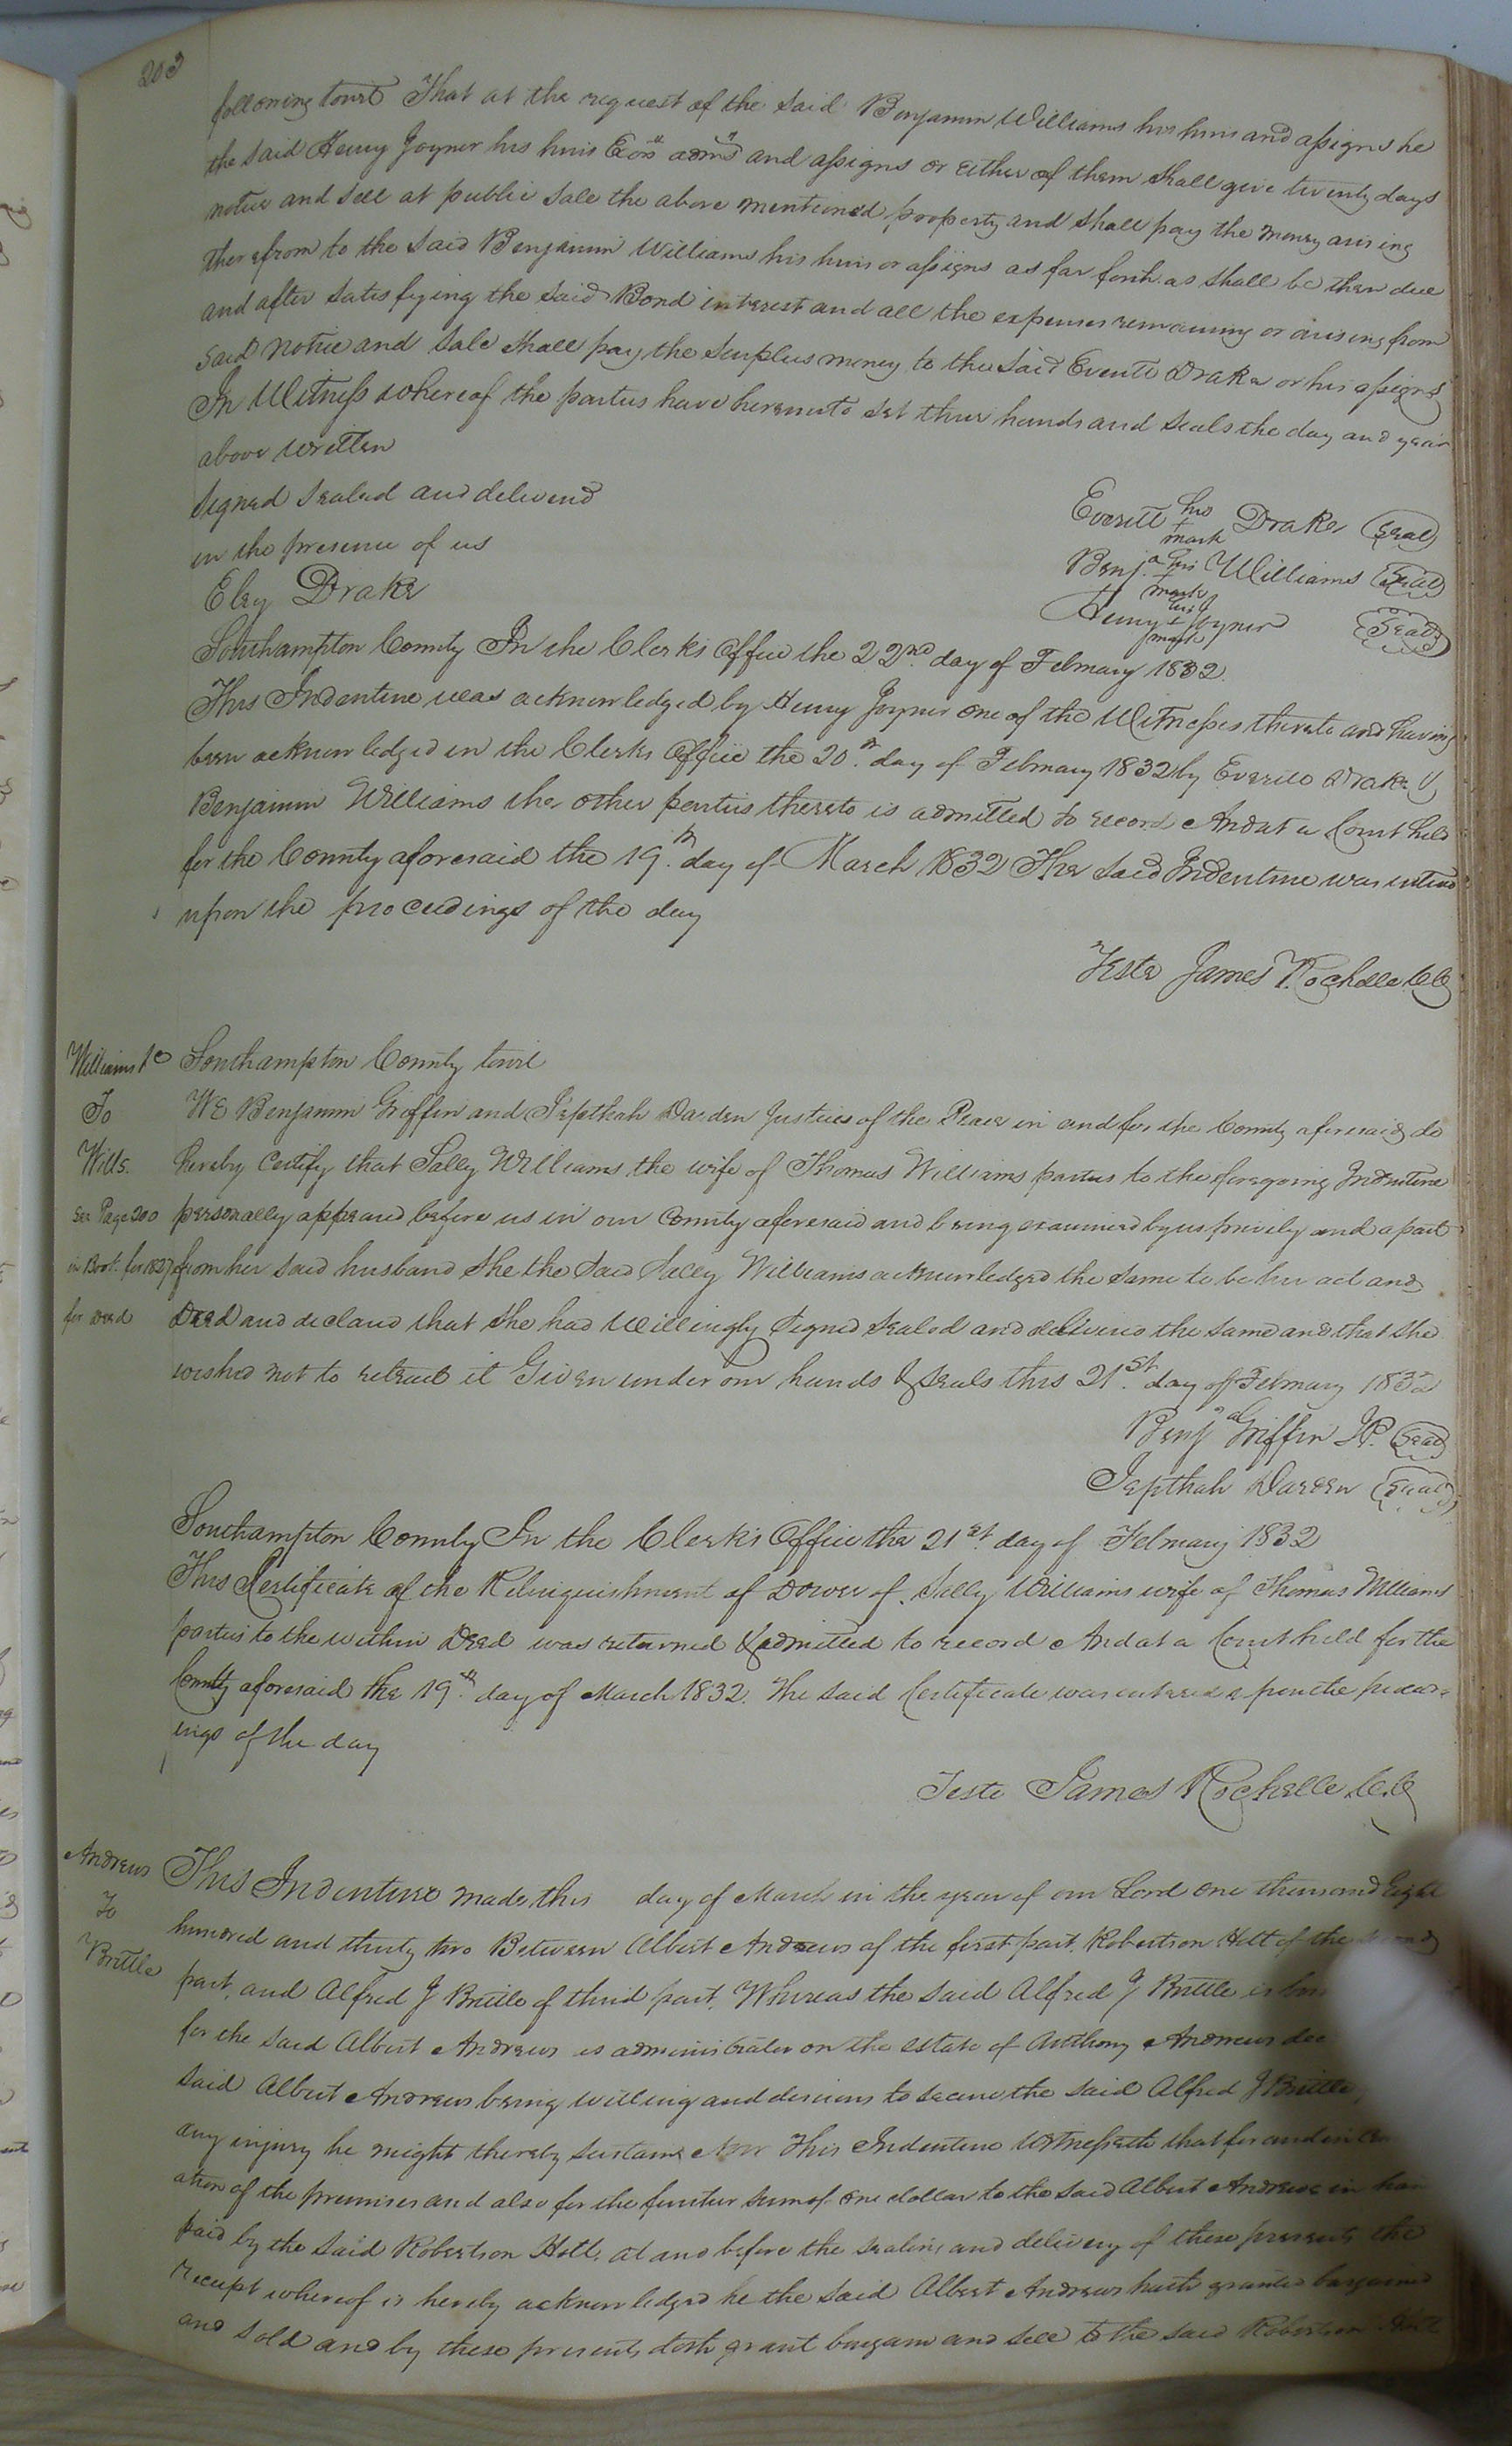 203
following towit That at the request of the said Benjamin Williams his heirs and assigns he
the said Henry Joyner his heirs Exors admrs and assigns or either of them shall give twenty days
notice and sell at public sale the above mentioned property and shall pay the money arising
therefrom to the said Benjamin Williams his heirs or assigns as far forth as shall be then due
and after satisfying the said Bond interest and all the expenses remaining or arising from
said notice and sale shall pay the surplus money to the said Everitt Drake or his assigns
In Witness whereof the parties have hereunto set their hands and seals the day and year
above written
Signed sealed and delivered
in the presence of us
Eley Drake
Everitt his + mark Drake Seal
Benja his + mark Williams Seal
Henry his + mark Joyner Seal
Southampton County In the Clerks Office the 22nd day of February 1832
This Indenture was acknowledged by Henry Joyner one of the Witnesses thereto and having
been acknowledged in the Clerks Office the 20th day of February 1832 by Everitt Drake &
Benjamin Williams the other parties thereto is admitted to record And at a Court held
for the County aforesaid the 19th day of March 1832 The said Indenture was entered
upon the proceedings of the day
Teste James Rochelle CC
Williams &c
To
Wills.
See Page 200
in Book for 1827
for deed
Southampton County towit
We Benjamin Griffin and Jepthah Darden Justices of the Peace in and for the County aforesaid do
hereby Certify that Sally Williams the wife of Thomas Williams parties to the foregoing Indenture
personally appeared before us in our County aforesaid and being examined by us privily and apart
from her said husband She the said Sally Williams acknowledged the same to be her act and
Deed and declared that she had Willingly Signed sealed and delivered the same and that she
wished not to retract it Given under our hands & seals this 21st day of February 1832
Benja Griffin JP. Seal
Jepthah Darden Seal
Southampton County In the Clerk's Office the 21st day of February 1832
This Certificate of the Relinquishment of Dower of Sally Williams wife of Thomas Williams
parties to the within Deed was returned & admitted to record And at a Court held for the
County aforesaid the 19th day of March 1832. The said Certificate was entered upon the proceed=
ings of the day
Teste James Rochelle C.C.
Andrews
To
Brittle
This Indenture made this day of March in the year of our Lord one thousand Eight
hundred and thirty two Between Albert Andrews of the first part, Robertson Holt of the second
part, and Alfred J Brittle of third part, Whereas the said Alfred J Brittle is
for the said Albert Andrews as administrator on the estate of Anthony Andrews dec
said Albert Andrews being willing and desirous to secure the said Alfred J Brittle
any injury he might thereby sustain Now This Indenture Witnesseth that for and in
ation of the premises and also for the further sum of one dollar to the said Albert Andrews in han
paid by the said Robertson Holt, at and before the sealing and delivery of these presents the
receipt whereof is hereby acknowledged he the said Albert Andrews hath granted bargained
and sold and by these presents doth grant bargain and sell to the said Robertson Holt